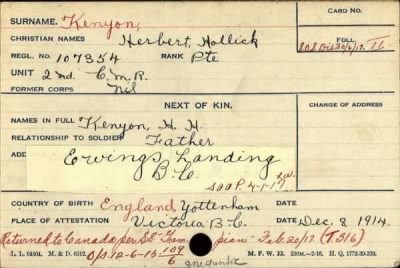 SURNAME. Kenyon,
CARD NO.
CHRISTIAN NAMES Herbert, Hollick
FOLL.
REGL. NO. 107354 RANK Pte
S.O.S. Dis 20/6/17. 16
UNIT 2nd. C.M.R.
FORMER CORPS Nil
NEXT OF KIN.
CHANGE OF ADDRESS
NAMES IN FULL Kenyon, H. H.
RELATIONSHIP TO SOLDIER Father
ADD Ewings Landing
B.C.
COUNTRY OF BIRTH England, Tottenham
PLACE OF ATTESTATION Victoria B.C. DATE Dec, 8, 1914.
Returned to Canada, per SS "Grampian" Feb 20/17 (T.316)
L. L. M. & D. M. F. W. 22. H. Q. 1772-39-339.
O/S. 12-6-15 109/6